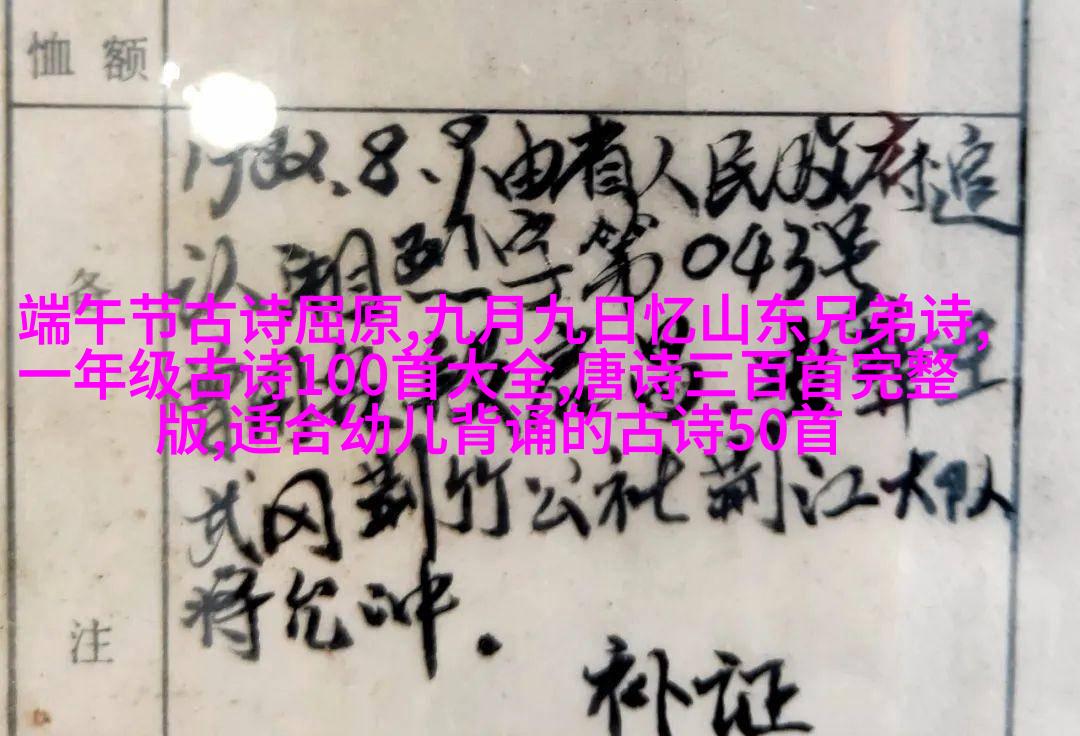 恤额
1982.8.9由省人民政府追
认湘烈字第043号
备
端午节古诗屈原,九月九日忆山东兄弟诗,
一年级古诗100首大全,唐诗三百首完整
版,适合幼儿背诵的古诗50首
武冈荆竹公社荆江大队
蒋允冲.
注
补证